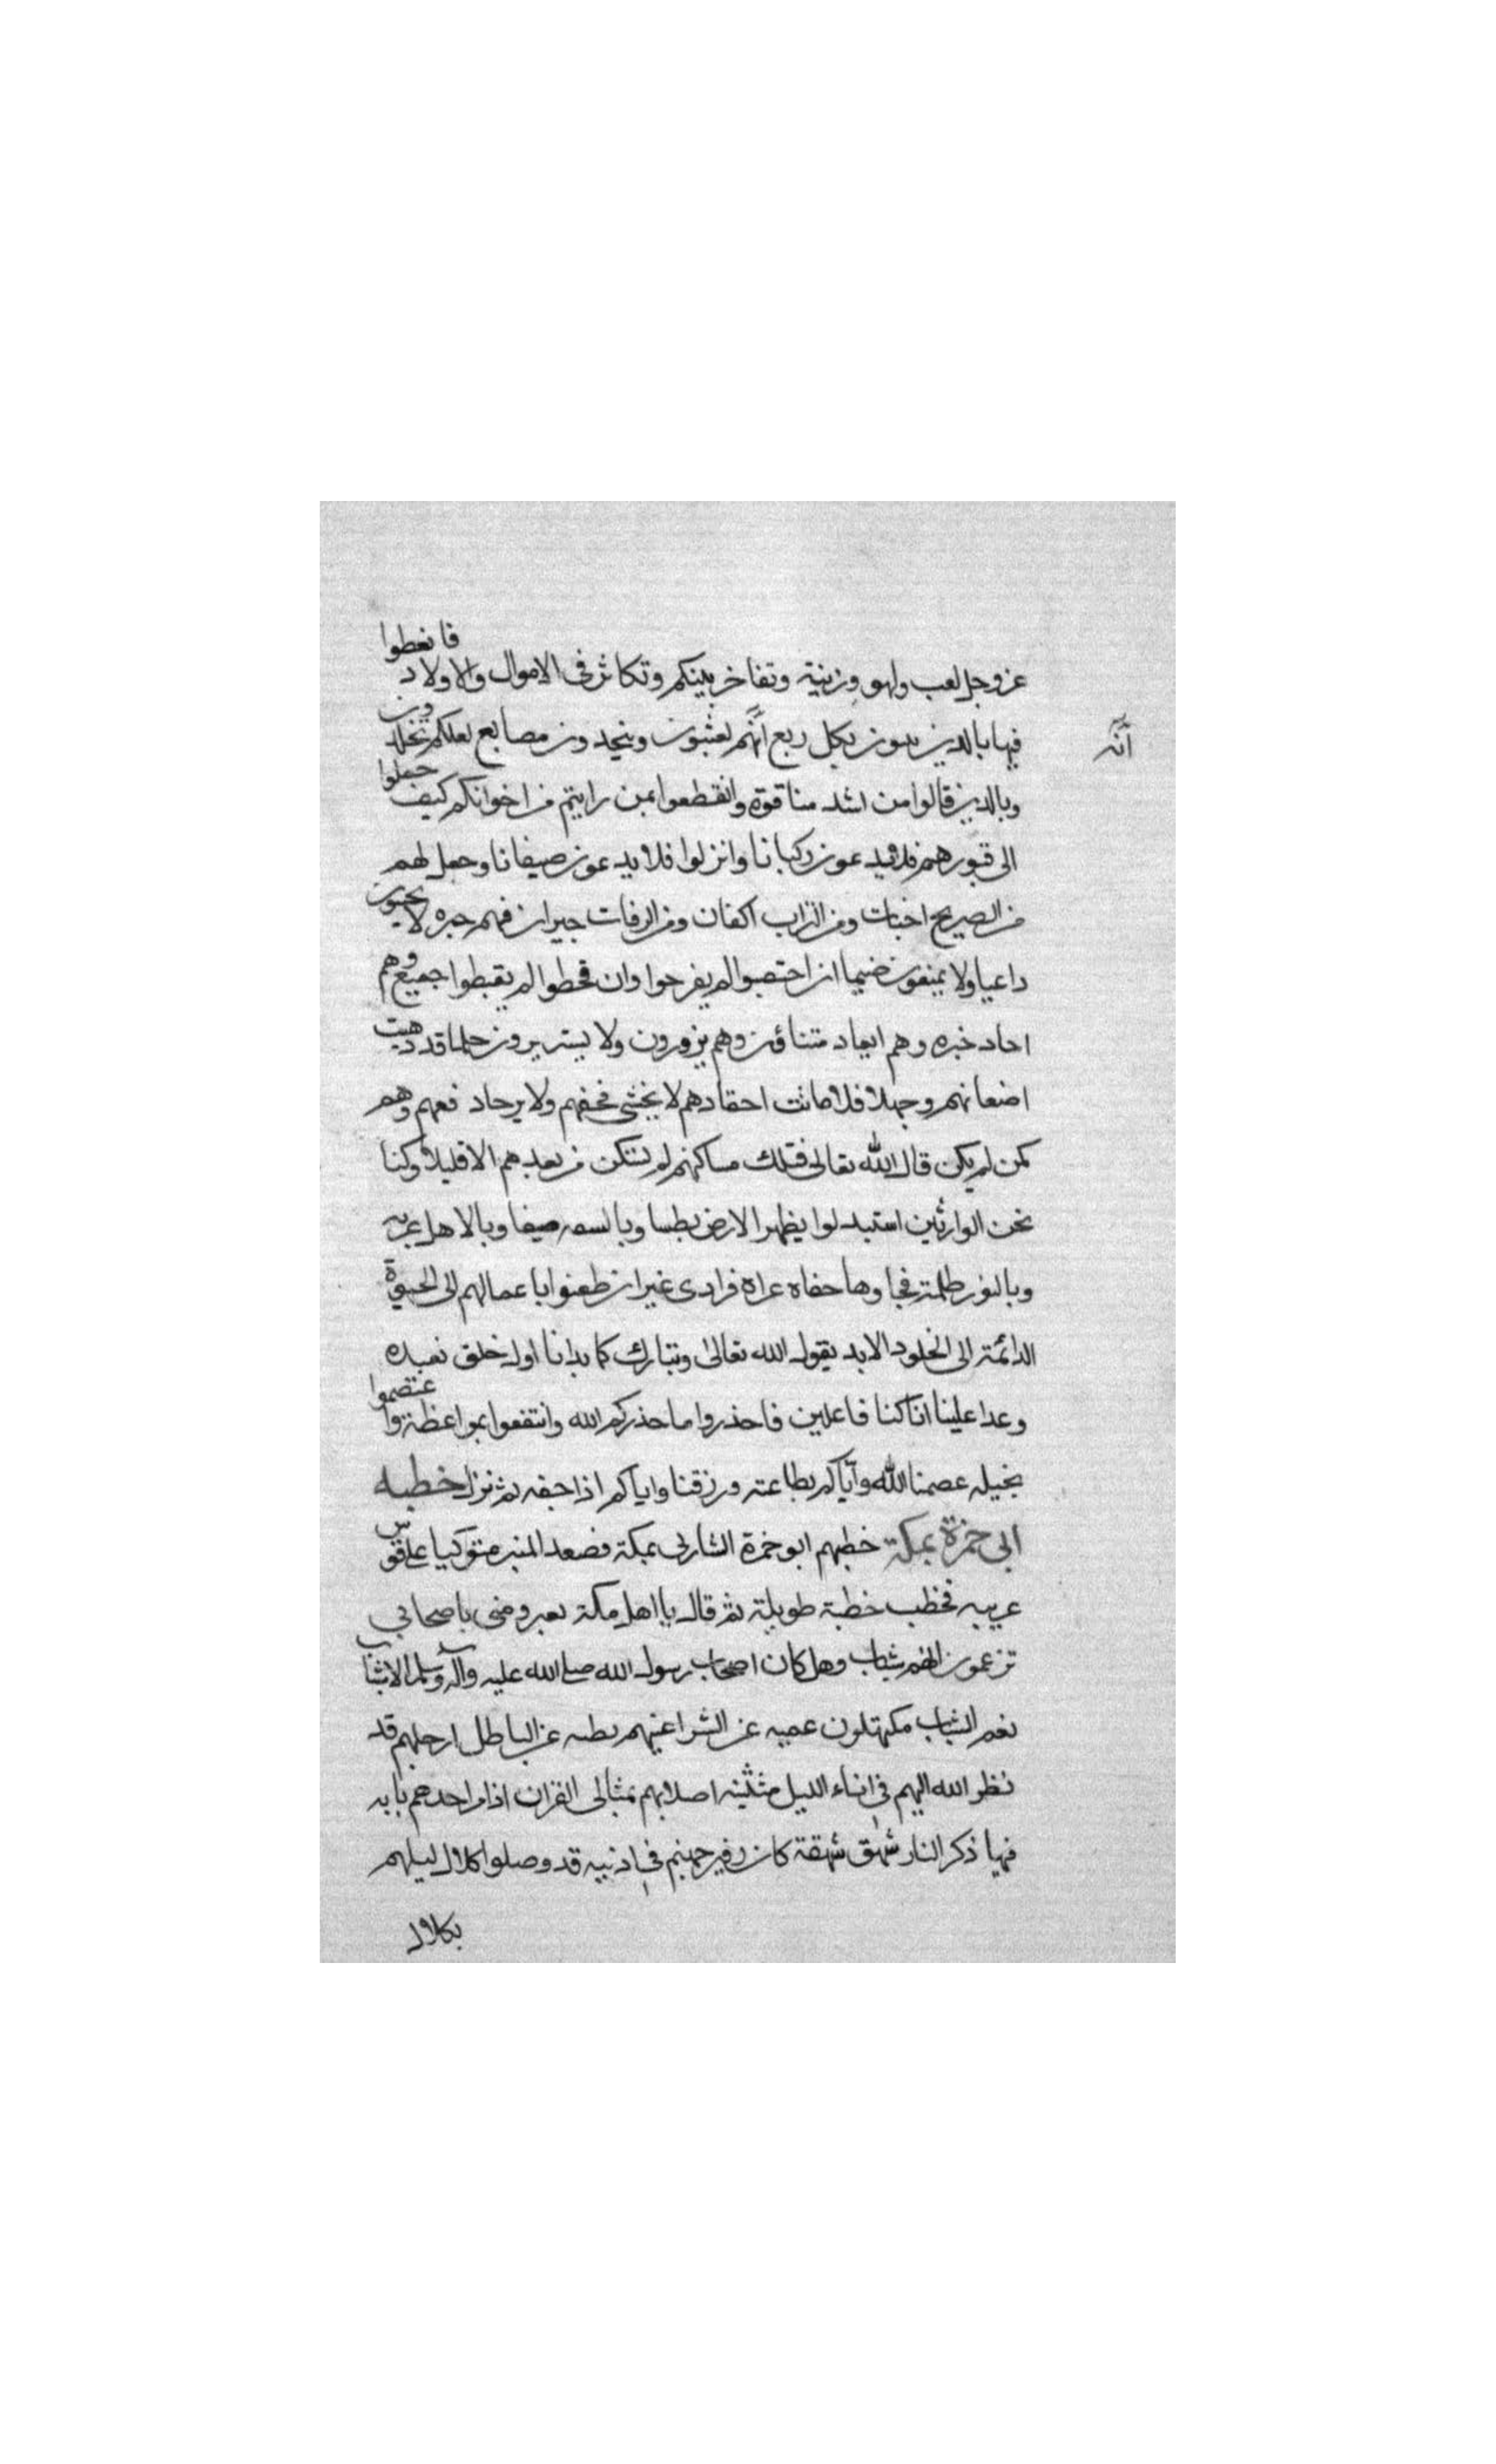 عز وجل لعب ولهو وزينة وتفاخر بينكم وتكاثر فى الاموال والاولاد فاتعظوا
فيها بالدين يبنون بكل ريع آية تعبثون ويتخدون مصانع لعلكم تخلدون
انّه
وبالدين قالوا من اشد منا قوة واتعظوا بمن رايتم من اخوانكم كيف حملوا
الى قبورهم فلا يدعون ركبانا وانزلوا فلا يدعون ضيفانا وجعل لهم
من الصريح اخبات ومن التراب اكفان ومن الرفات جيران فهم جيره لا يجيبون
داعيا ولا يمنعون ضيما ان اخصبوا لم يفرحوا وان قحطوا لم يقنطوا جميع وهم
احاد جيره وهم ابعاد متناؤن وهم يزورون ولا يستزيرون حلما قد ذهبت
اضغانهم وجهلا قد ماتت احقادهم لا يخشى فجعهم ولا يرجا دفعهم وهم
كمن لم يكن قال الله تعالى فتلك مساكنهم لم تسكن من بعدهم الا قليلا وكنا
نحن الوارثين استبدلوا بظهر الارض بطنا وبالسعه ضيقا وبالاهل غربه
وبالنور ظلمة فجاوها حفاه عراه فرادى غير ان ظعنوا باعمالهم الى الحيوة
الدائمة الى الخلود الابد يقول الله تعالى وتبارك كما بدانا اول خلق نعيده
وعدا علينا انا كنا فاعلين فاحذروا ما حذركم الله وانتفعوا بمواعظة واعتصموا
بحبله عصمنا الله واياكم بطاعته ورزقنا واياكم اذا حقه ثم نزل خطبه
ابى حمزة بمكة خطبهم ابو حمزة الشارى بمكة فصعد المنبر متوكيا على قوس
عربيه فخطب خطبة طويلة ثم قال يا اهل مكة تعيرونى باصحابى
تزعمون انهم شباب وهل كان اصحاب رسول الله صلى الله عليه وآله وسلم الا شباب
نعم الشباب مكتهلون عميه عن الشر اعينهم بطيه عن الباطل ارجلهم قد
نظر الله اليهم فى اناء الليل مثنيه اصلابهم بمثانى القران اذا مر احدهم بايه
فيها ذكر النار شهق شهقة كان زفير جهنم فى اذنيه قد وصلوا كلال ليلهم
بكلال